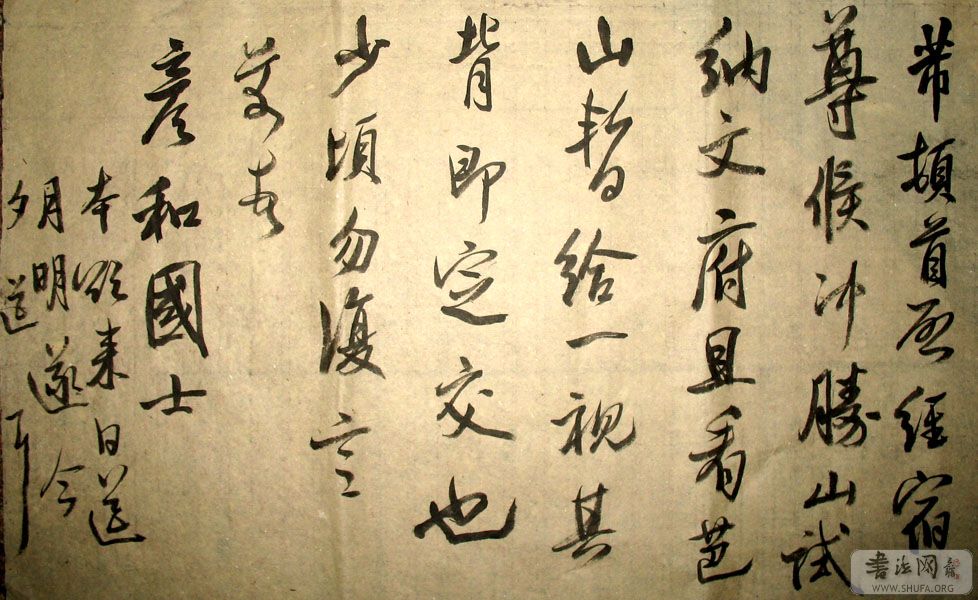 芾頓首啟經宿
尊候冲勝山試
納文府且看芭
山暫給一視其
背即定交也
少頃勿復言
芾頓首
彥和國士
本欲來日送
月明遂今
夕送耳
書法网
WWW.SHUFA.ORG